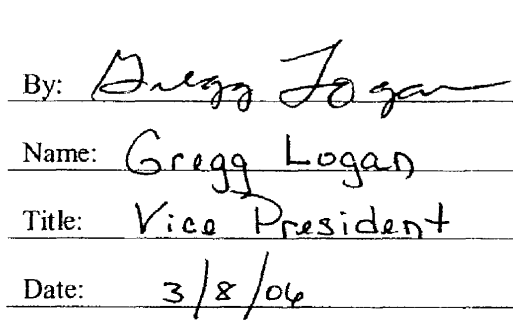 By: Gregg Logan
Name: Gregg Logan
Title: Vice President
Date: 3/8/06